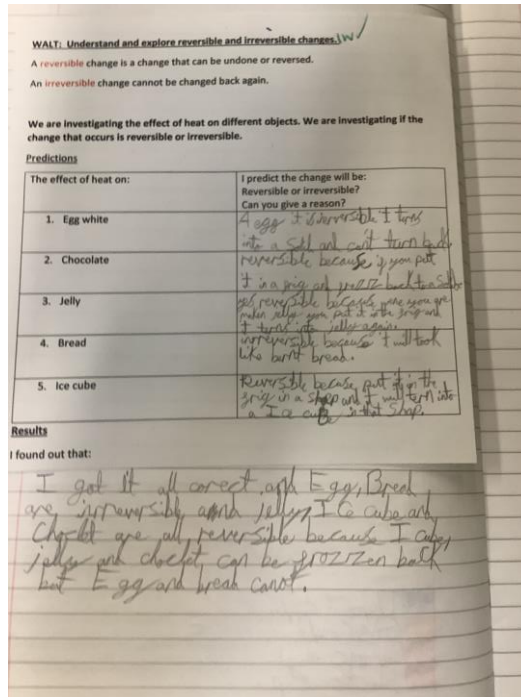 WALT: Understand and explore reversible and irreversible changes. IW
A reversible change is a change that can be undone or reversed.
An irreversible change cannot be changed back again.
We are investigating the effect of heat on different objects. We are investigating if the
change that occurs is reversible or irreversible.
Predictions
The effect of heat on:
I predict the change will be:
Reversible or irreversible?
Can you give a reason?
1. Egg white
A egg turns
into a and can't turn
2. Chocolate
reversible because if you put
it in a frig and back to a
3. Jelly
reversible you are
makin jelly you put it in the frig and
it turns into jelly again.
4. Bread
because it will look
like burnt bread.
5. Ice cube
put it in the
frig in a shap and it will tern into
a Ice cube in that Shap.
Results
I found out that:
I got it all corect, and Egg, Bread
are irreversibly jelly, Ice cube and
are all reversible because I
jelly and can be frozzen back
but Egg and break canot.